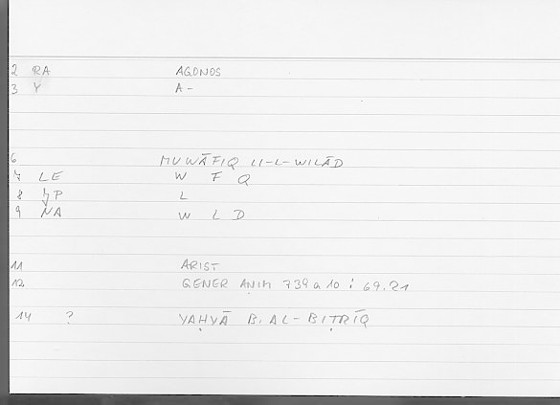 2 RA AGONOS
3 Y A-
6 MUWĀFIQ LI-L-WILĀD
7 LE W F Q
8 JP L
9 NA W L D
11 ARIST
12 GENER ANIM 739a10 : 69.21
14 ? YAḤYĀ B. AL-BIṬRĪQ